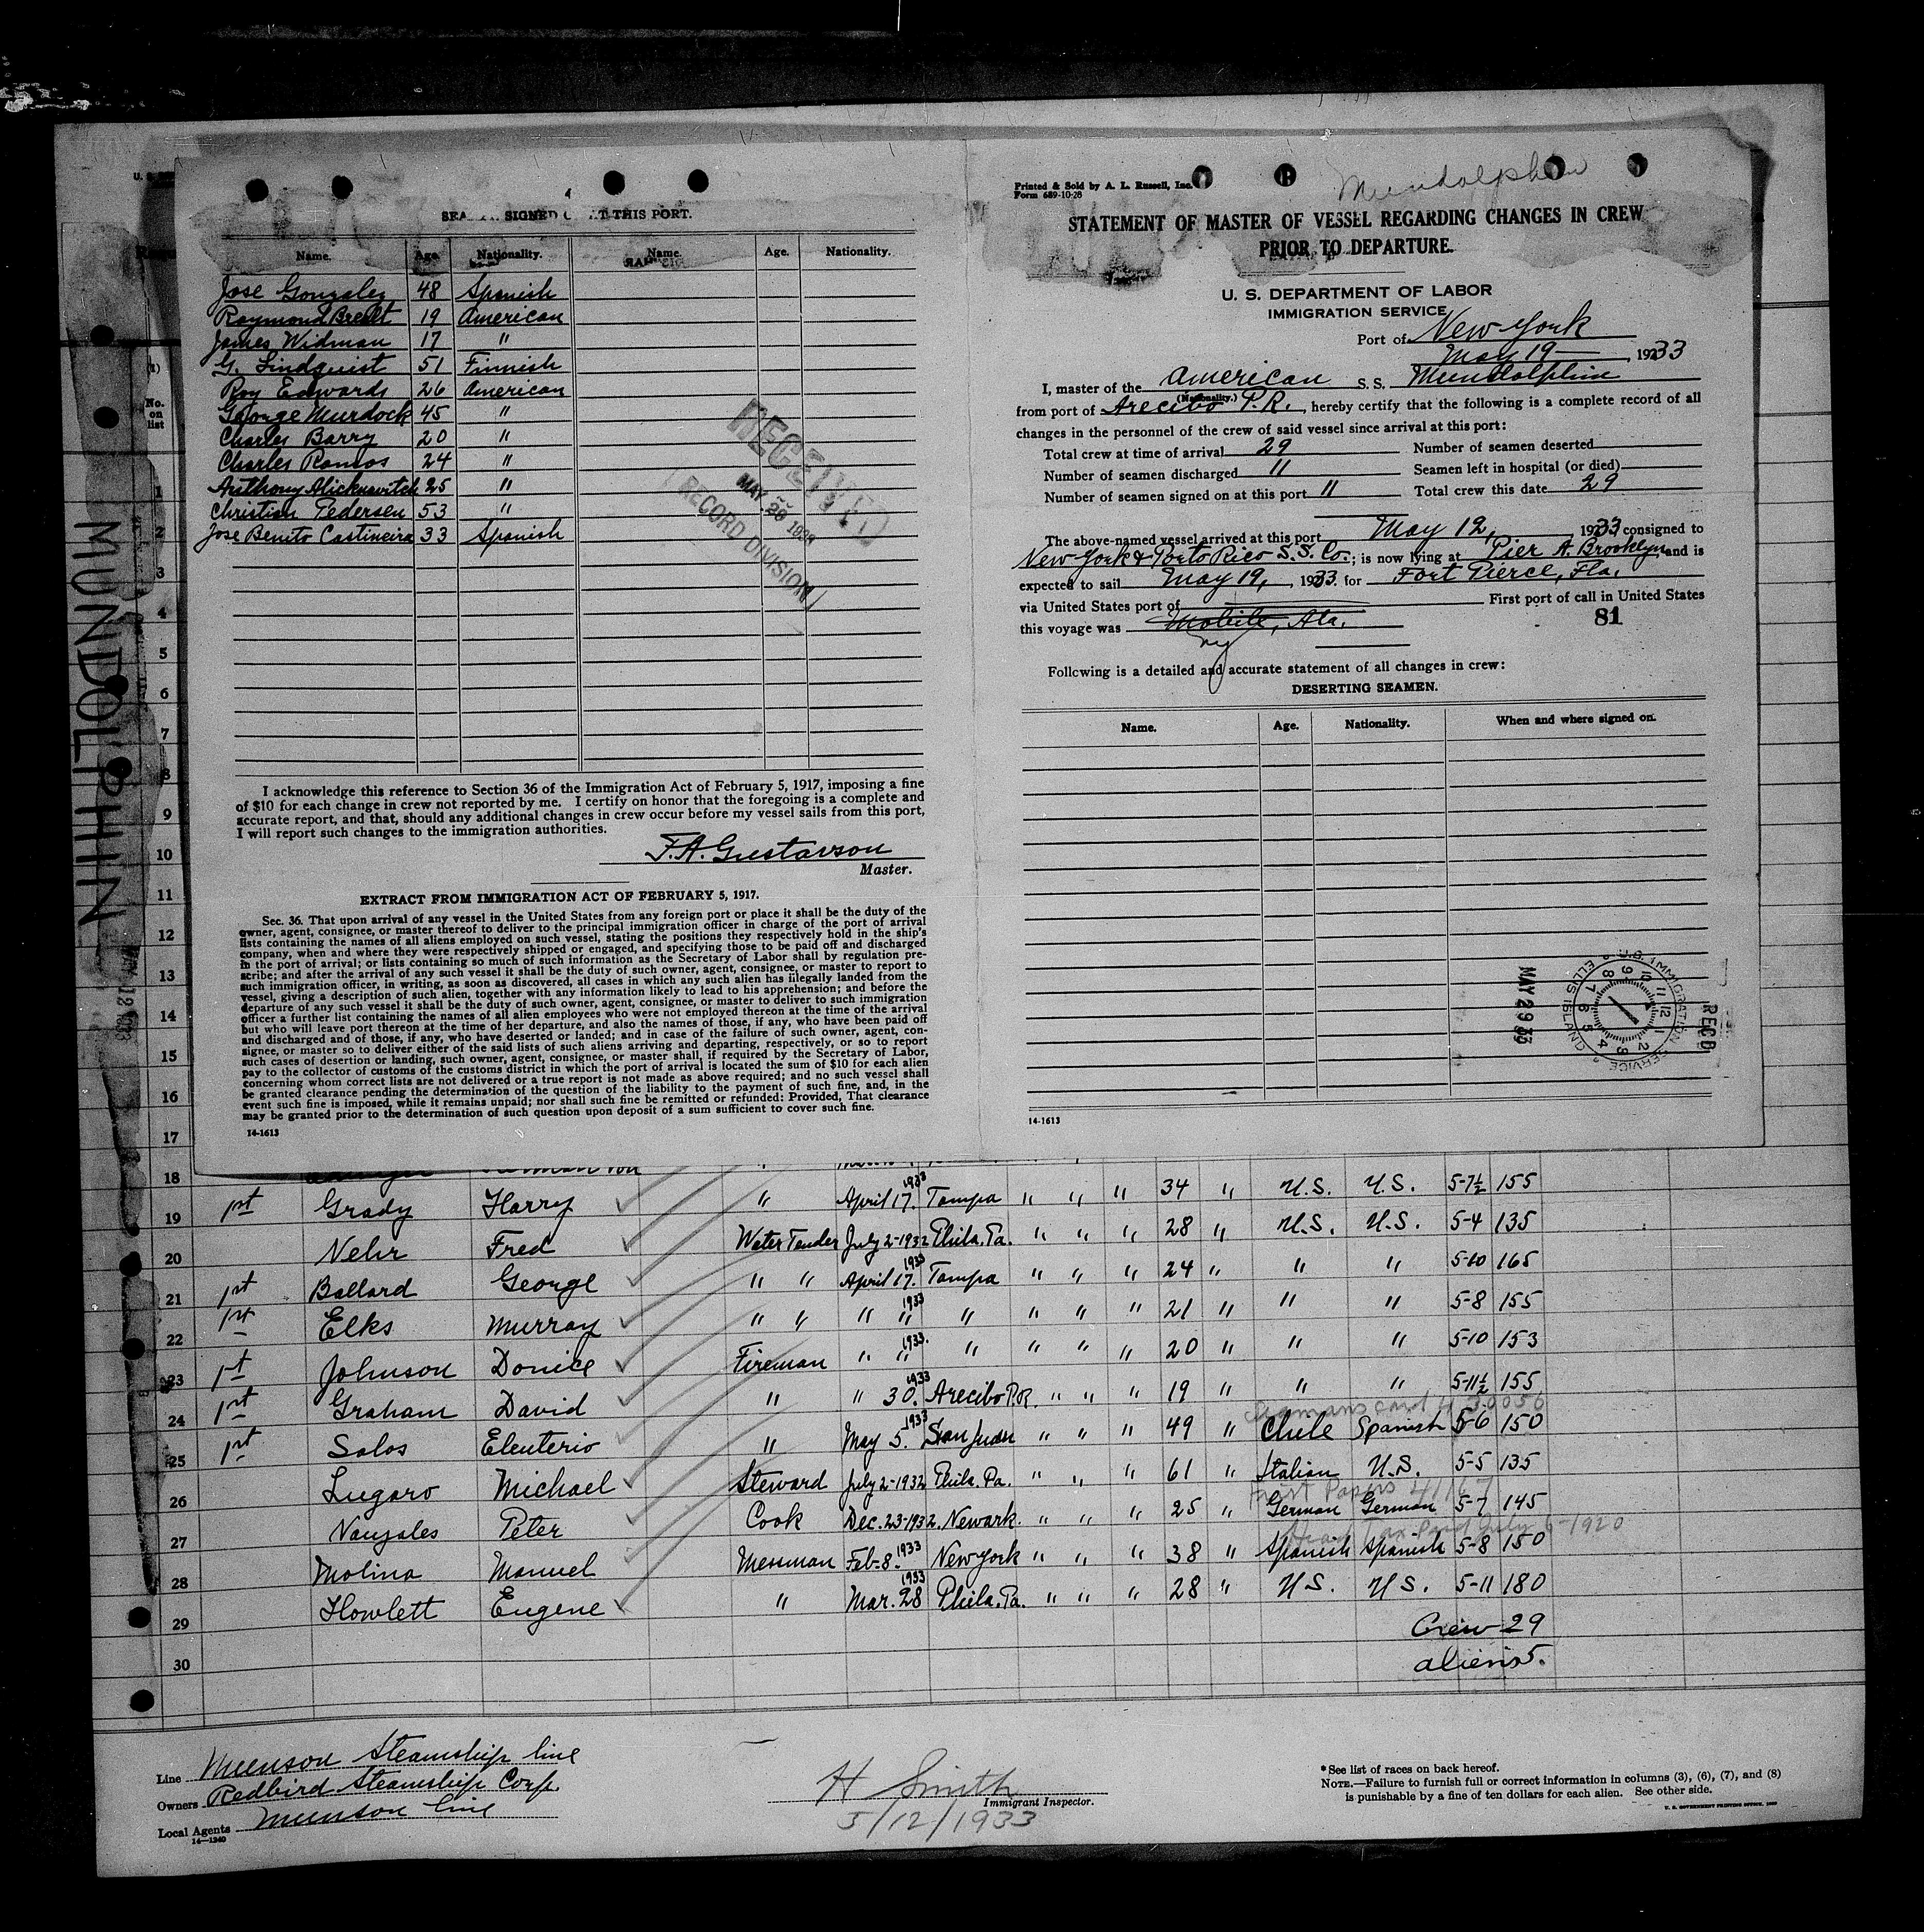 SIGNED THIS PORT.
Name. Age. Nationality. Name. Age. Nationality.
Jose Gonzalez 48 Spanish
Raymond 19 American
James Widman 17 "
G. Lindquist 51 Finnish
Roy Edwards 26 American
George Murdock 45 "
Charles Barry 20 "
Charles Ramos 24 "
Anthony 25 "
Christian Pedersen 53 "
Jose Benito Castineira 33 Spanish
RECEIVED
MAY 26 1933
RECORD DIVISION
I acknowledge this reference to Section 36 of the Immigration Act of February 5, 1917, imposing a fine
of $10 for each change in crew not reported by me. I certify on honor that the foregoing is a complete and
accurate report, and that, should any additional changes in crew occur before my vessel sails from this port,
I will report such changes to the immigration authorities.
F.A. Gustavson
Master.
EXTRACT FROM IMMIGRATION ACT OF FEBRUARY 5, 1917.
Sec. 36. That upon arrival of any vessel in the United States from any foreign port or place it shall be the duty of the
owner, agent, consignee, or master thereof to deliver to the principal immigration officer in charge of the port of arrival
lists containing the names of all aliens employed on such vessel, stating the positions they respectively hold in the ship's
company, when and where they were respectively shipped or engaged, and specifying those to be paid off and discharged
in the port of arrival; or lists containing so much of such information as the Secretary of Labor shall by regulation pre-
scribe; and after the arrival of any such vessel it shall be the duty of such owner, agent, consignee, or master to report to
such immigration officer, in writing, as soon as discovered, all cases in which any such alien has illegally landed from the
vessel, giving a description of such alien, together with any information likely to lead to his apprehension; and before the
departure of any such vessel it shall be the duty of such owner, agent, consignee, or master to deliver to such immigration
officer a further list containing the names of all alien employees who were not employed thereon at the time of the arrival
but who will leave port thereon at the time of her departure, and also the names of those, if any, who have been paid off
and discharged and of those, if any, who have deserted or landed; and in case of the failure of such owner, agent, con-
signee, or master so to deliver either of the said lists of such aliens arriving and departing, respectively, or so to report
such cases of desertion or landing, such owner, agent, consignee, or master shall, if required by the Secretary of Labor,
pay to the collector of customs of the customs district in which the port of arrival is located the sum of $10 for each alien
concerning whom correct lists are not delivered or a true report is not made as above required; and no such vessel shall
be granted clearance pending the determination of the question of the liability to the payment of such fine, and, in the
event such fine is imposed, while it remains unpaid; nor shall such fine be remitted or refunded: Provided, That clearance
may be granted prior to the determination of such question upon deposit of a sum sufficient to cover such fine.
14-1613
Printed & Sold by A. L. Russell, Inc.
Form 689-10-28
Mundolphin
STATEMENT OF MASTER OF VESSEL REGARDING CHANGES IN CREW
PRIOR TO DEPARTURE.
U. S. DEPARTMENT OF LABOR
IMMIGRATION SERVICE
Port of New York
May 19 , 1933
I, master of the American S. S. Mundolphin
(Nationality.)
from port of Arecibo P.R. , hereby certify that the following is a complete record of all
changes in the personnel of the crew of said vessel since arrival at this port:
Total crew at time of arrival 29 Number of seamen deserted
Number of seamen discharged 11 Seamen left in hospital (or died)
Number of seamen signed on at this port 11 Total crew this date 29
The above-named vessel arrived at this port May 12, 1933 consigned to
New York & Porto Rico S.S. Co. ; is now lying at Pier A. Brooklyn and is
expected to sail May 19, , 1933 for Fort Pierce, Fla.
via United States port of First port of call in United States
this voyage was Mobile, Ala. 81
ny
Following is a detailed and accurate statement of all changes in crew:
DESERTING SEAMEN.
Name. Age. Nationality. When and where signed on.
REC'D
U.S. IMMIGRATION SERVICE ELLIS ISLAND
MAY 29 33
14-1613
MUNDOLPHIN
(1)
No.
on
list
1
2
3
4
5
6
7
8
9
10
11
12
13
14
15
16
17
18
19 1st Grady Harry " April 17. 1933 Tampa " " " 34 " U.S. U.S. 5-7½ 155
20 Nehr Fred Water Tender July 2-1932 Phila. Pa. " " " 28 " U.S. U.S. 5-4 135
21 1st Ballard George " " April 17. 1933 Tampa " " " 24 " " " 5-10 165
22 1st Elks Murray " " " " 1933 " " " " 21 " " " 5-8 155
23 1st Johnson Donice Fireman " " 1933. " " " " 20 " " " 5-10 153
24 1st Graham David " " 30. 1933 Arecibo P.R. " " " 19 " " " 5-11½ 155
25 1st Salos Eleuterio " May 5. 1933 San Juan " " " 49 " Chile Spanish 5-6 150
26 Lugaro Michael Steward July 2-1932 Phila. Pa. " " " 61 " Italian U.S. 5-5 135
First Papers
27 Nauyales Peter Cook Dec. 23-1932. Newark. " " " 25 " German German 5-7 145
Head Tax Paid July 6-1920
28 Molina Manuel Messman Feb-8. 1933 New York " " " 38 " Spanish Spanish 5-8 150
29 Howlett Eugene " Mar. 28 1933 Phila. Pa. " " " 28 " U.S. U.S. 5-11 180
30
Crew-29
aliens 5.
Line Munson Steamship line
Owners Redbird Steamship Corp.
Local Agents Munson line
14-1240
H Smith
Immigrant Inspector.
5/12/1933
* See list of races on back hereof.
NOTE.—Failure to furnish full or correct information in columns (3), (6), (7), and (8)
is punishable by a fine of ten dollars for each alien. See other side.